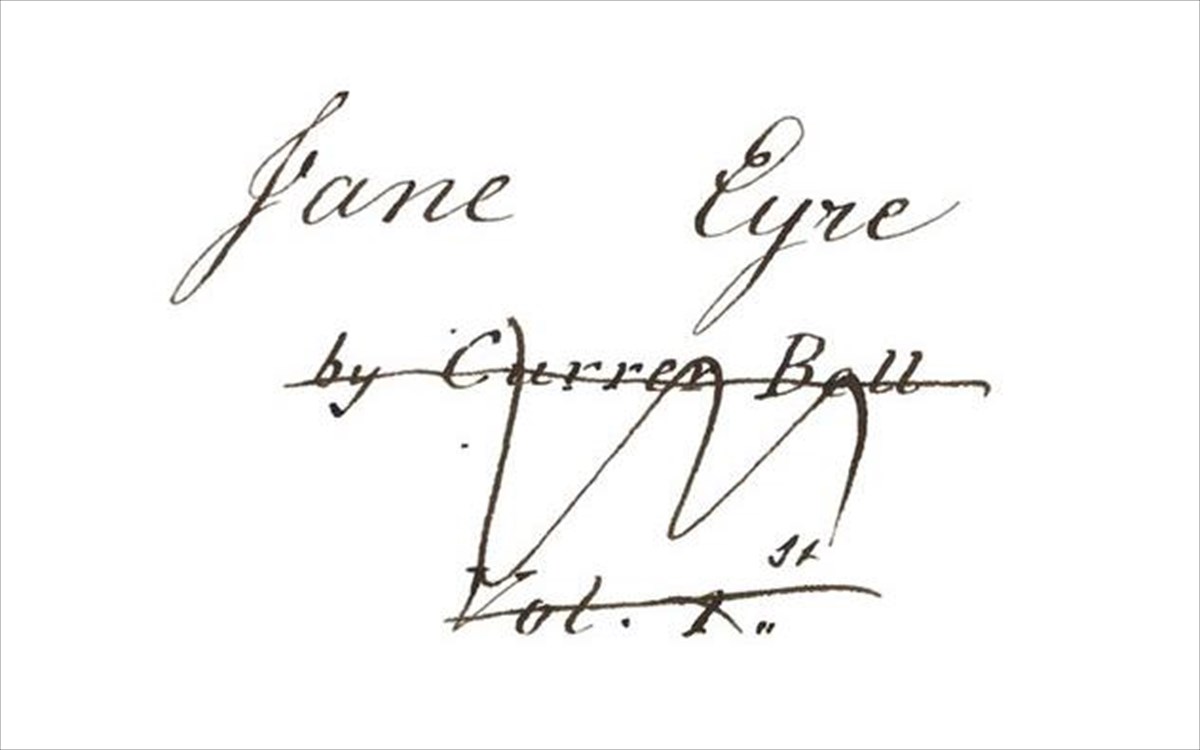 Jane Eyre
by Currer Bell
Vol. 1.st